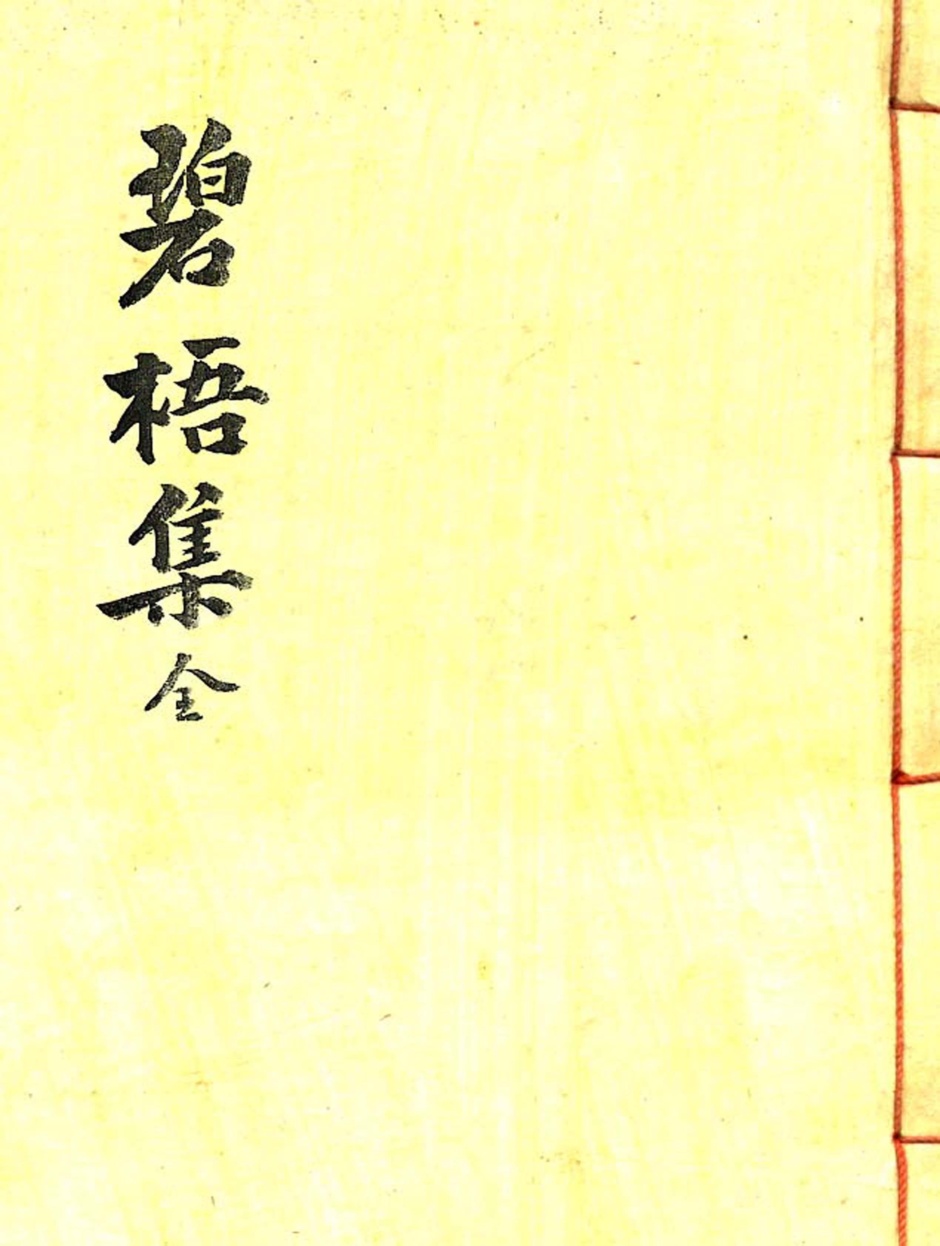 碧梧集全